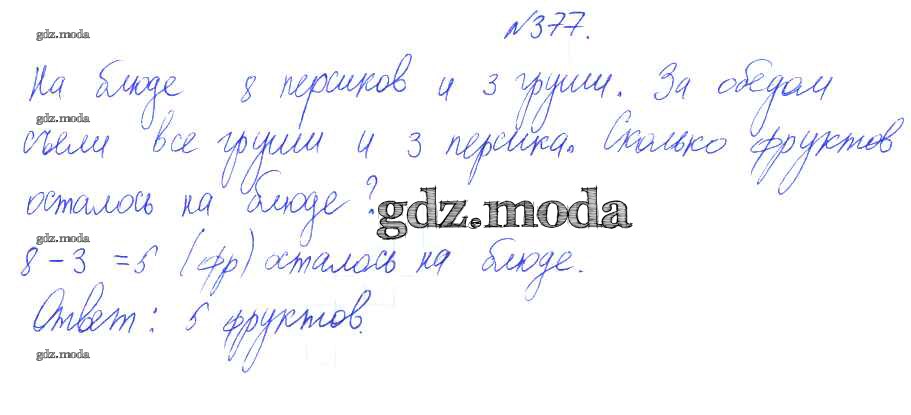 gdz.moda
№377.
На блюде 8 персиков и 3 груши. За обедом
gdz.moda
съели все груши и 3 персика. Сколько фруктов
осталось на блюде?
gdz.moda
gdz.moda
8 - 3 = 5 (фр) осталось на блюде.
Ответ: 5 фруктов.
gdz.moda